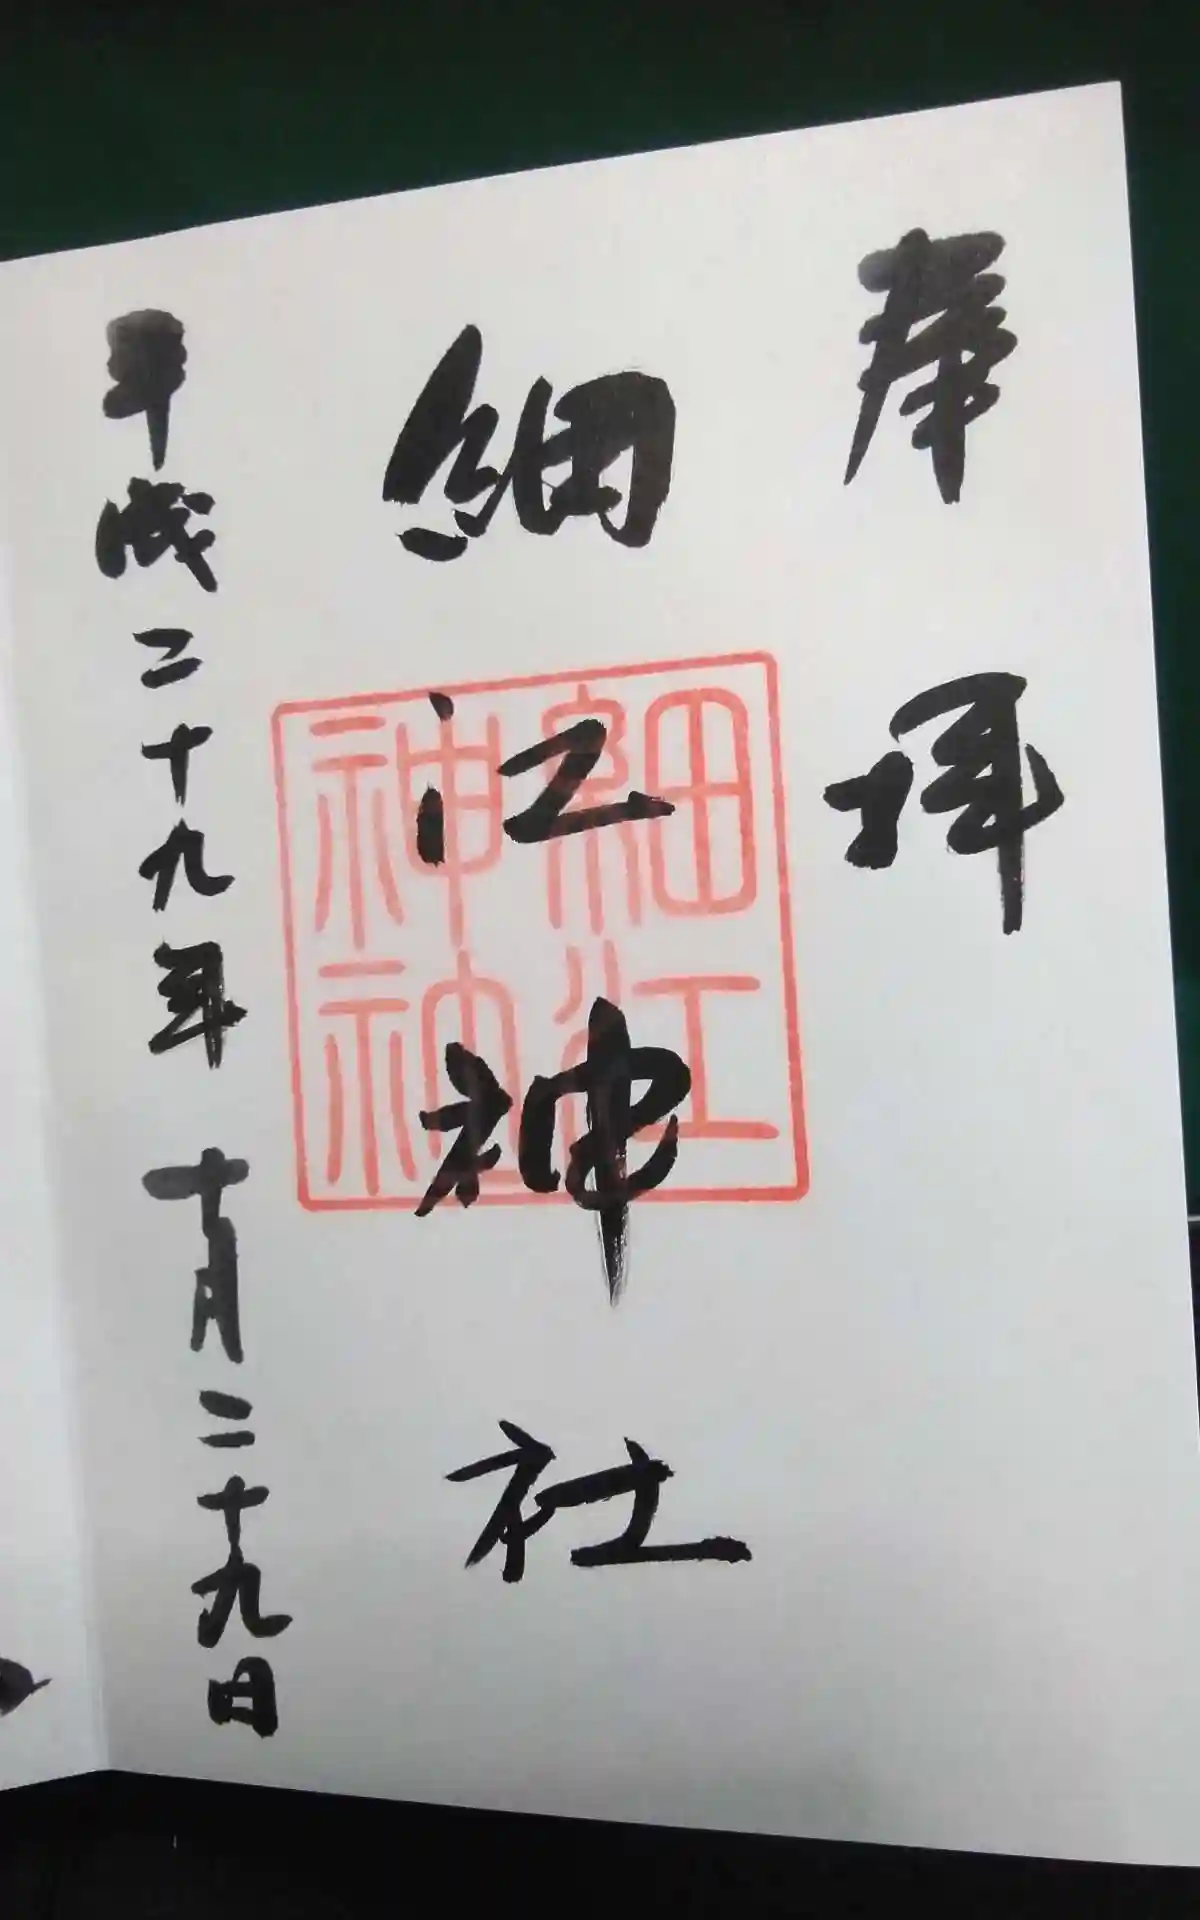 奉拝
細江神社
細江
神社
平成二十九年十月二十九日